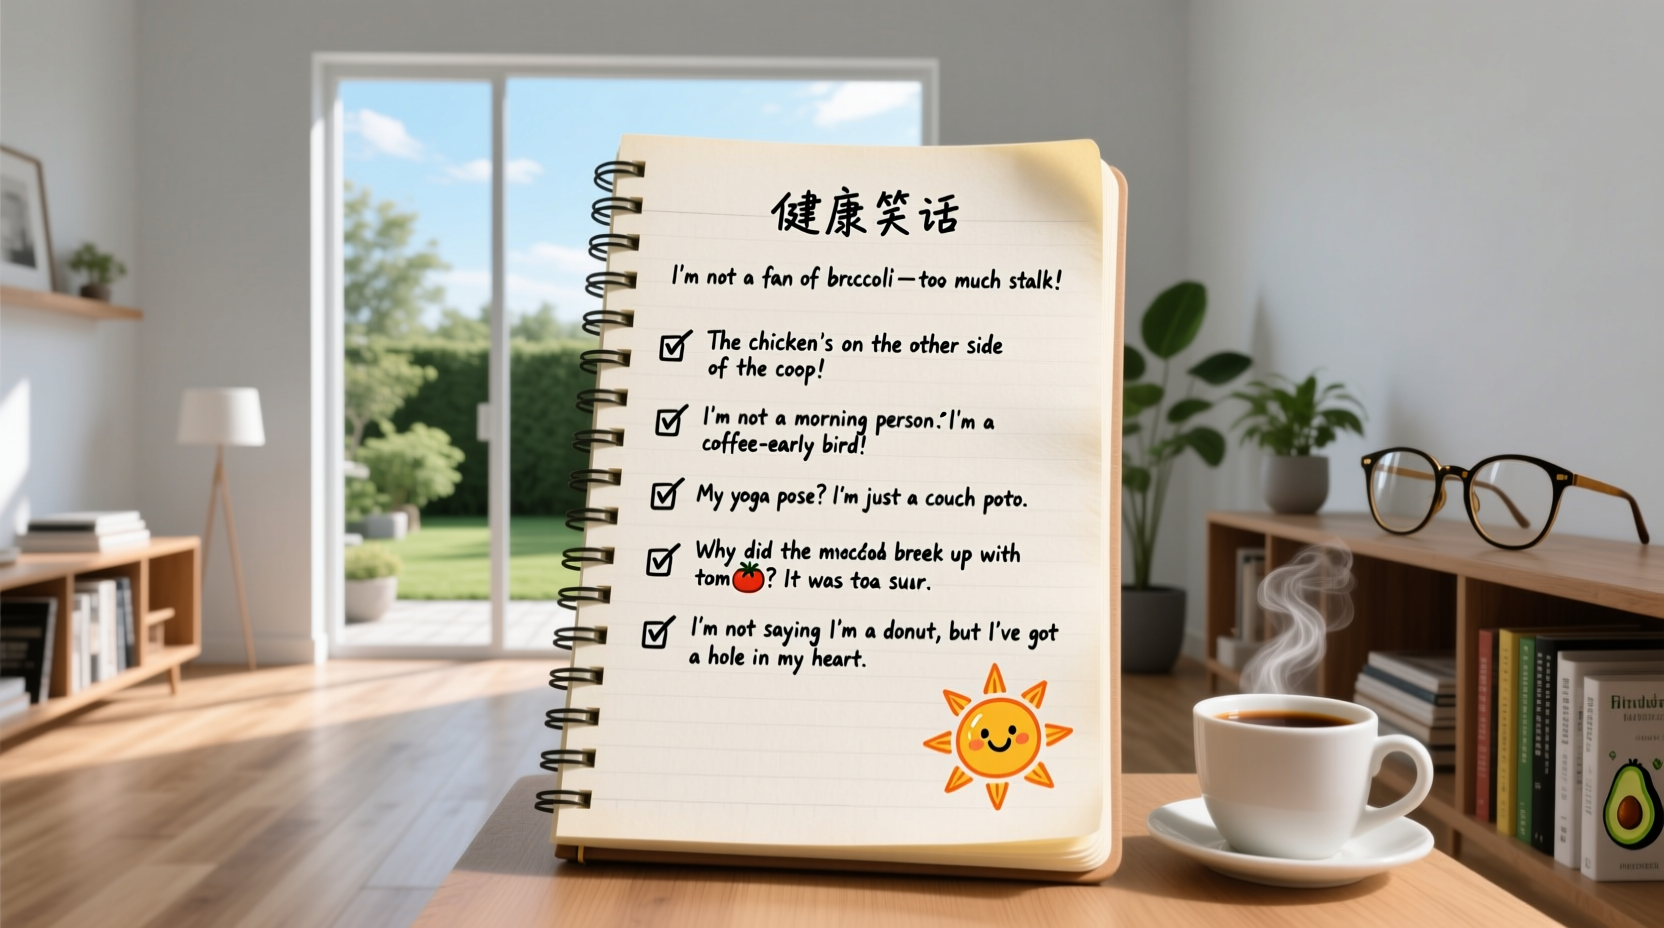 健康笑话
I'm not a fan of brcccoli—too much stalk!
The chicken's on the other side
of the coop!
I'm not a morning person.´I'm a
coffee-early bird!
My yoga pose? I'm just a couch poto.
Why did the breek up with
tom🍅? It was toa suır.
I'm not saying I'm a donut, but I've got
a hole in my heart.